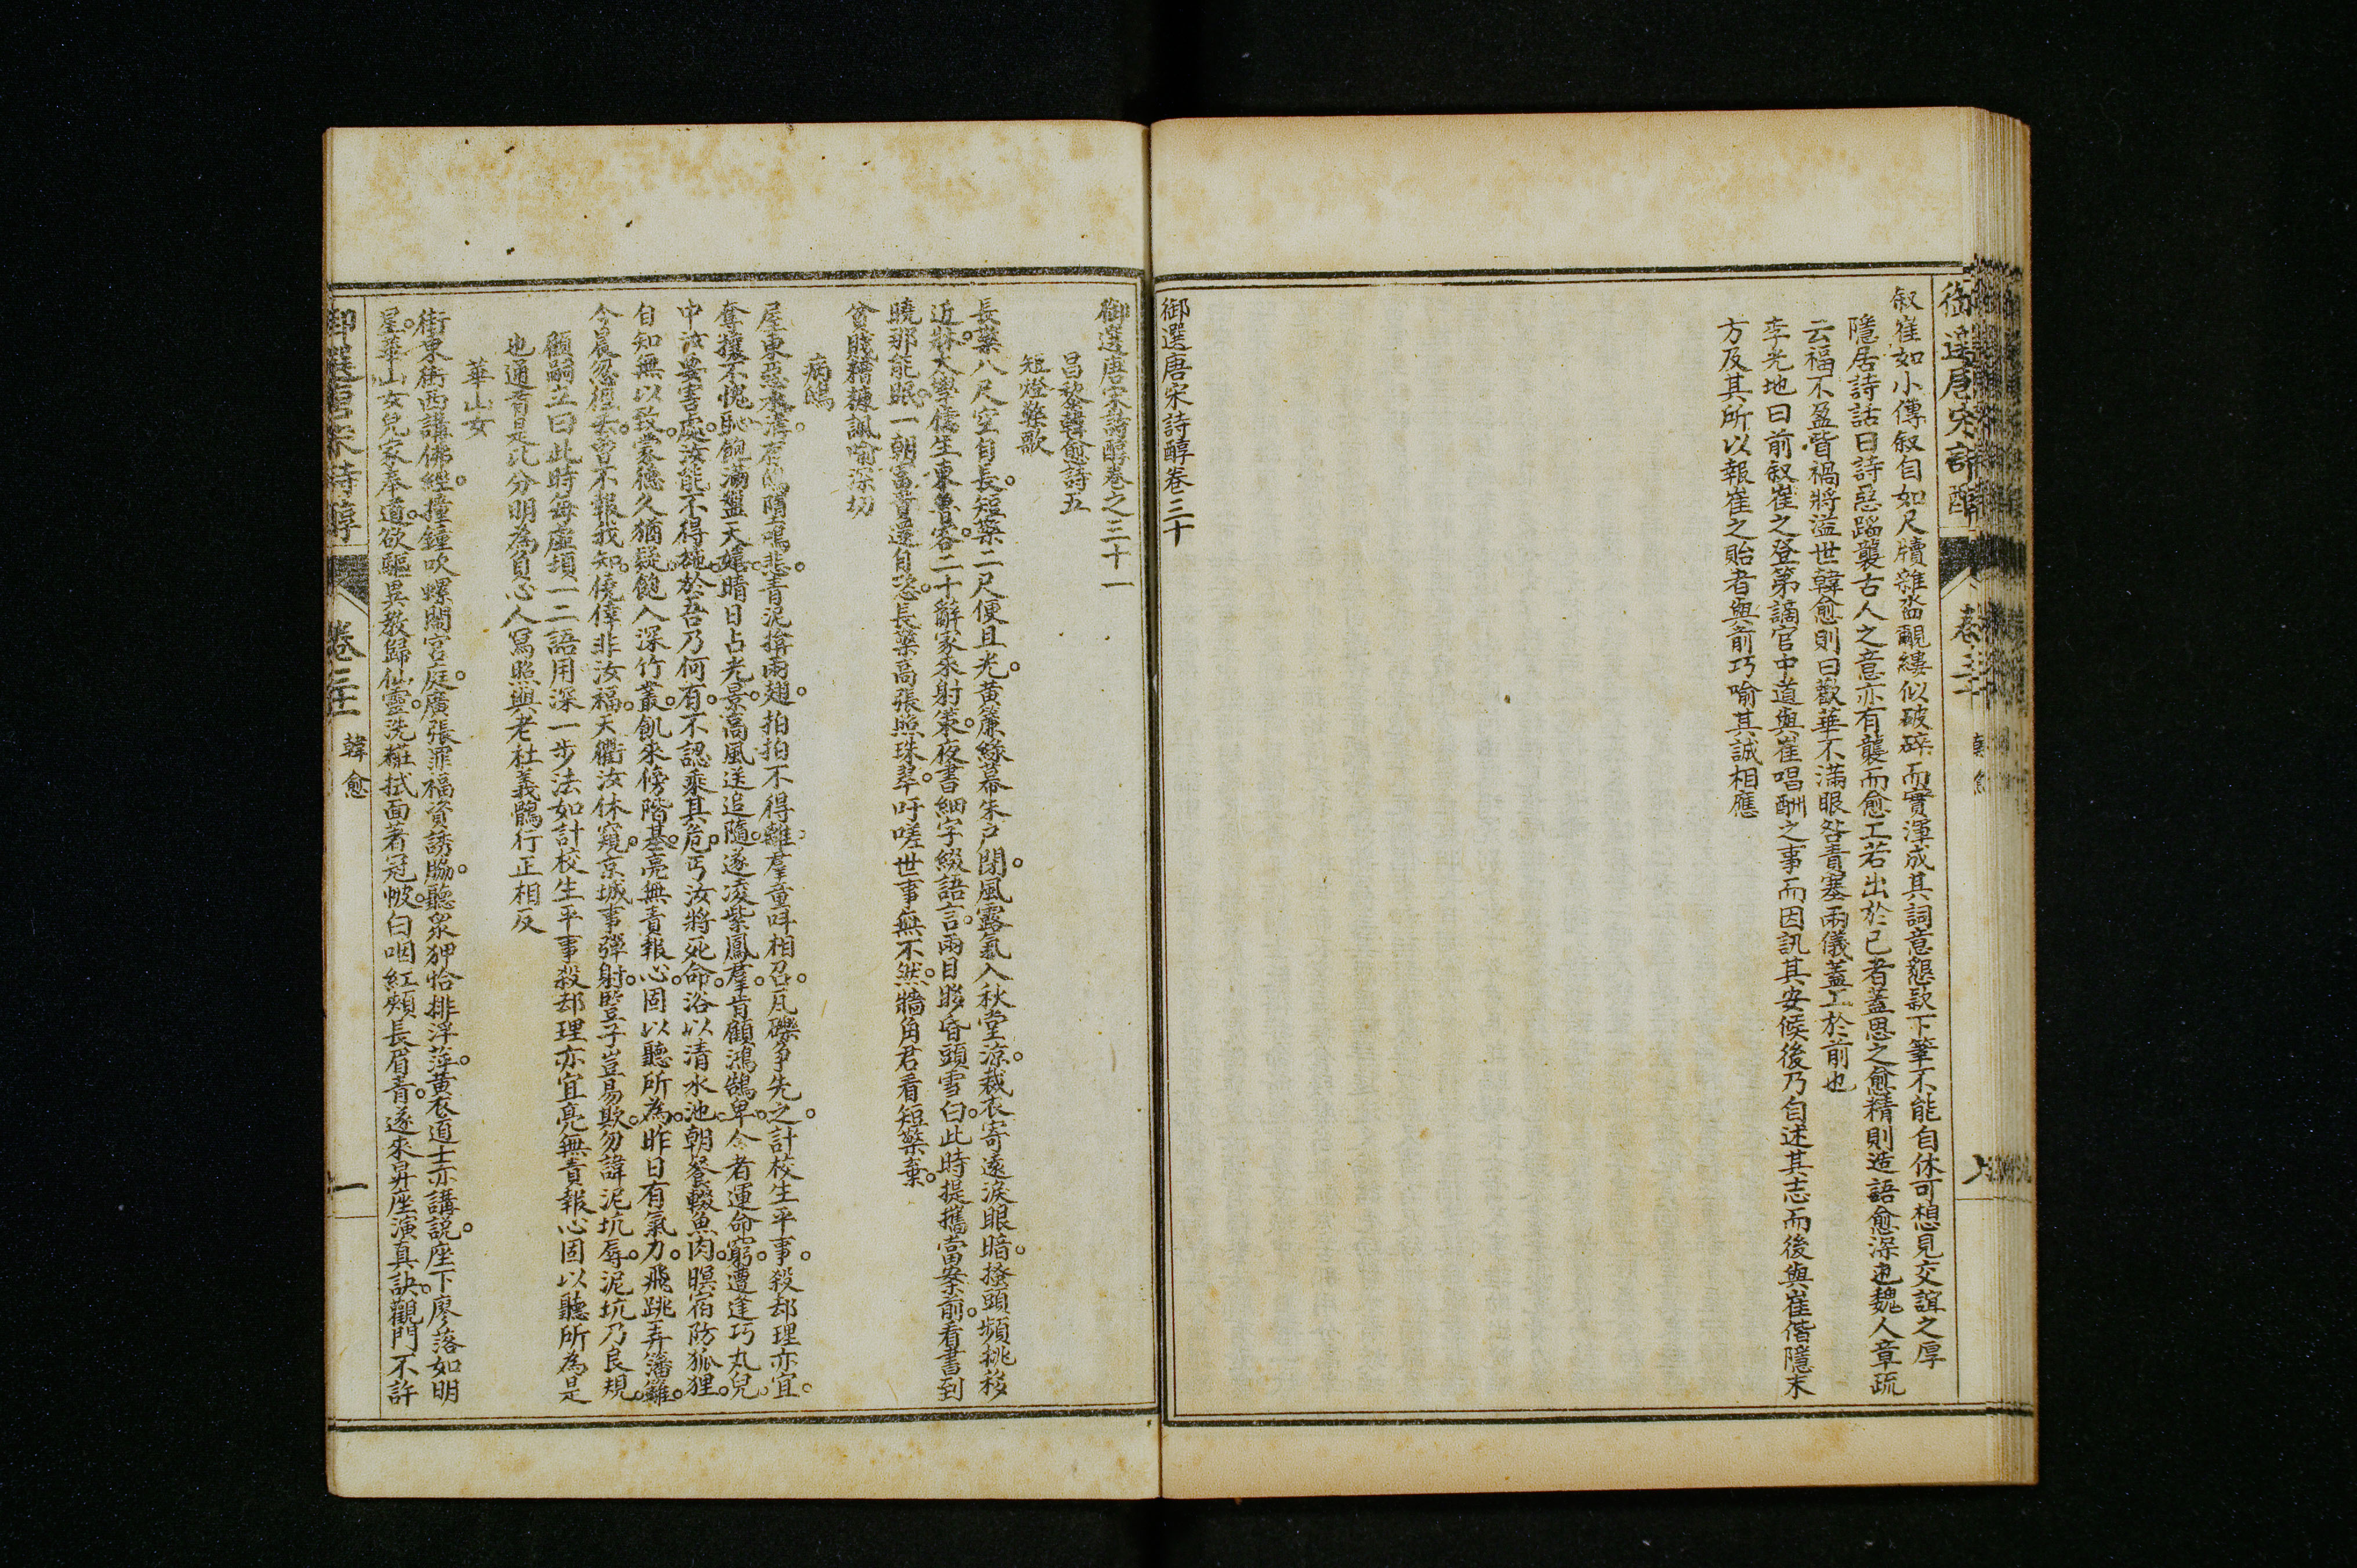 御選唐宋詩醇
卷三十
叙崔如小傳叙自如尺牘雜沓覼縷似破碎而實渾成其詞意懇款下筆不能自休可想見交誼之厚
隱居詩話曰詩惡蹈襲古人之意亦有襲而愈工若出於己者蓋思之愈精則造語愈深也魏人章疏
云福不盈眥禍將溢世韓愈則曰歡華不滿眼咎責塞兩儀蓋工於前也
李光地曰前叙崔之登第謫官中道與崔唱酬之事而因訊其安候後乃自述其志而後與崔偕隱末
方及其所以報崔之貽者與前巧喻其誠相應
御選唐宋詩醇卷三十
御選唐宋詩醇卷之三十一
昌黎韓愈詩五
短燈檠歌
長檠八尺空自長短檠二尺便且光黃簾綠幕朱戶閉風露氣入秋堂涼裁衣寄遠淚眼暗搔頭頻挑移
近牀太學儒生東魯客二十辭家來射策夜書細字綴語言兩目眵昏頭雪白此時提攜當案前看書到
曉那能眠一朝富貴還自恣長檠高張照珠翠吁嗟世事無不然牆角君看短檠棄
貧賤糟糠諷喻深切
病鴟
屋東惡水溝有鴟墮鳴悲青泥揜兩翅拍拍不得離羣童呌相召瓦礫爭先之計校生平事殺却理亦宜
奪攘不愧恥飽滿盤天嬉晴日占光景高風送追隨遂凌紫鳳羣肯顧鴻鵠卑今者運命窮遭逢巧丸兒
中汝要害處汝能不得施於吾乃何有不認乘其危丐汝將死命浴以清水池朝餐輟魚肉暝宿防狐狸
自知無以致蒙德久猶疑飽入深竹叢飢來傍階基亮無責報心固以聽所為昨日有氣力飛跳弄籓籬
今晨忽徑去曾不報我知僥倖非汝福天衢汝休窺京城事彈射豎子豈易欺勿諱泥坑辱泥坑乃良規
顧嗣立曰此時每虛頓一二語用深一步法如計校生平事殺却理亦宜亮無責報心固以聽所為是
也通首是比分明為負心人寫照與老杜義鶻行正相反
華山女
街東街西講佛經撞鐘吹螺鬧宮庭廣張罪福資誘脇聽眾狎恰排浮萍黃衣道士亦講說座下廖落如明
星華山女兒家奉道欲驅異教歸仙靈洗粧拭面著冠帔白咽紅頰長眉青遂來昇座演真訣觀門不許
御選唐宋詩醇
卷三十一
韓愈
一